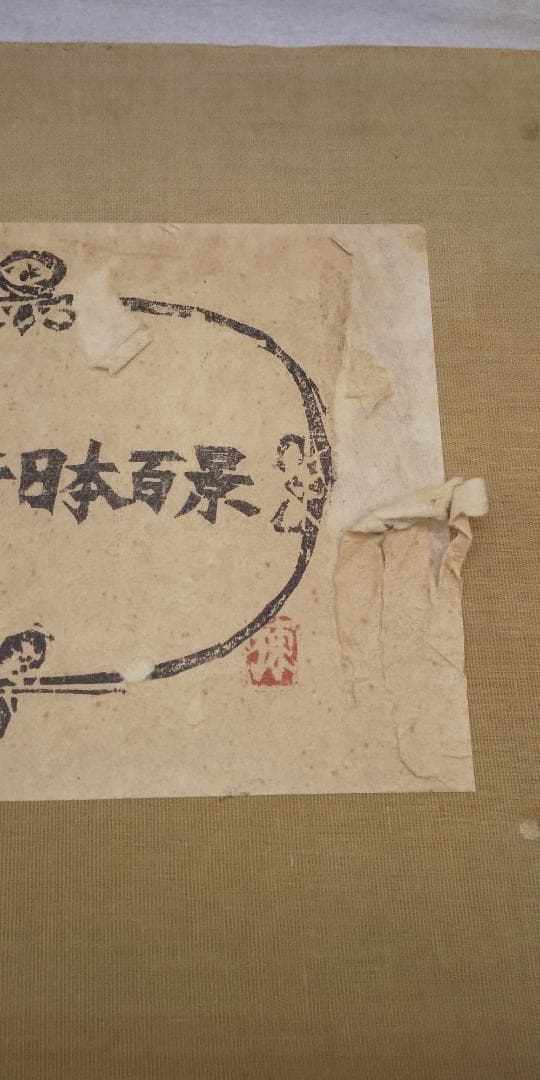 日本百景